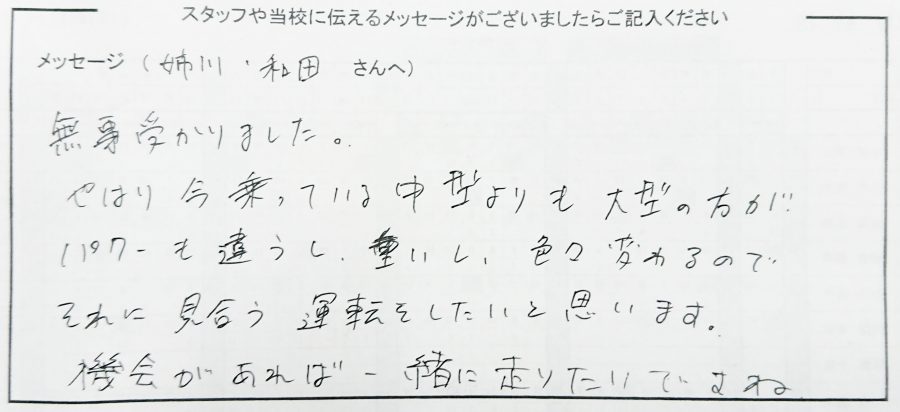 スタッフや当校に伝えるメッセージがございましたらご記入ください
メッセージ（姉川・和田 さんへ）
無事受かりました。
やはり今乗っている中型よりも大型の方が
パワーも違うし、重いし、色々変わるので
それに見合う運転をしたいと思います。
機会があれば一緒に走りたいですね